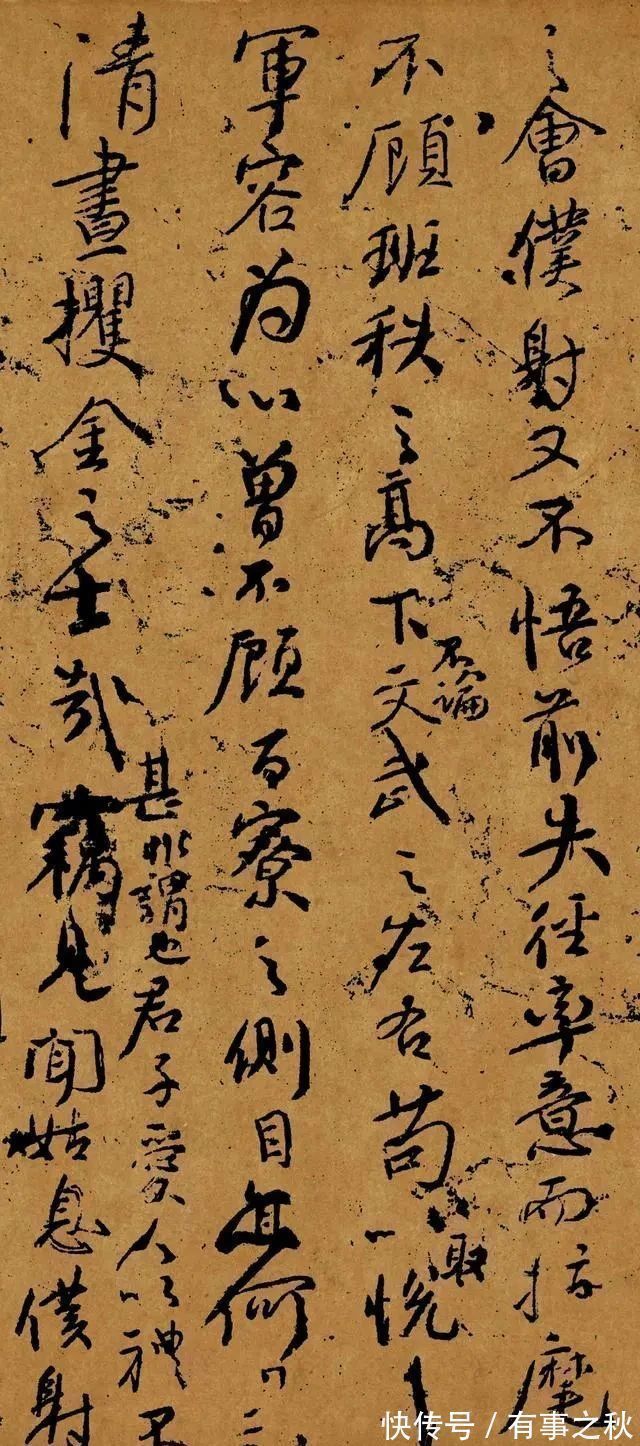 之會僕射又不悟前失徑率意而指麾
不顧班秩之高下不論文武之左右苟以取悅
軍容為心曾不顧百寮之側目亦何
清晝攫金之士哉
甚非謂也君子愛人以禮
竊見聞姑息僕射
快传号 / 有事之秋